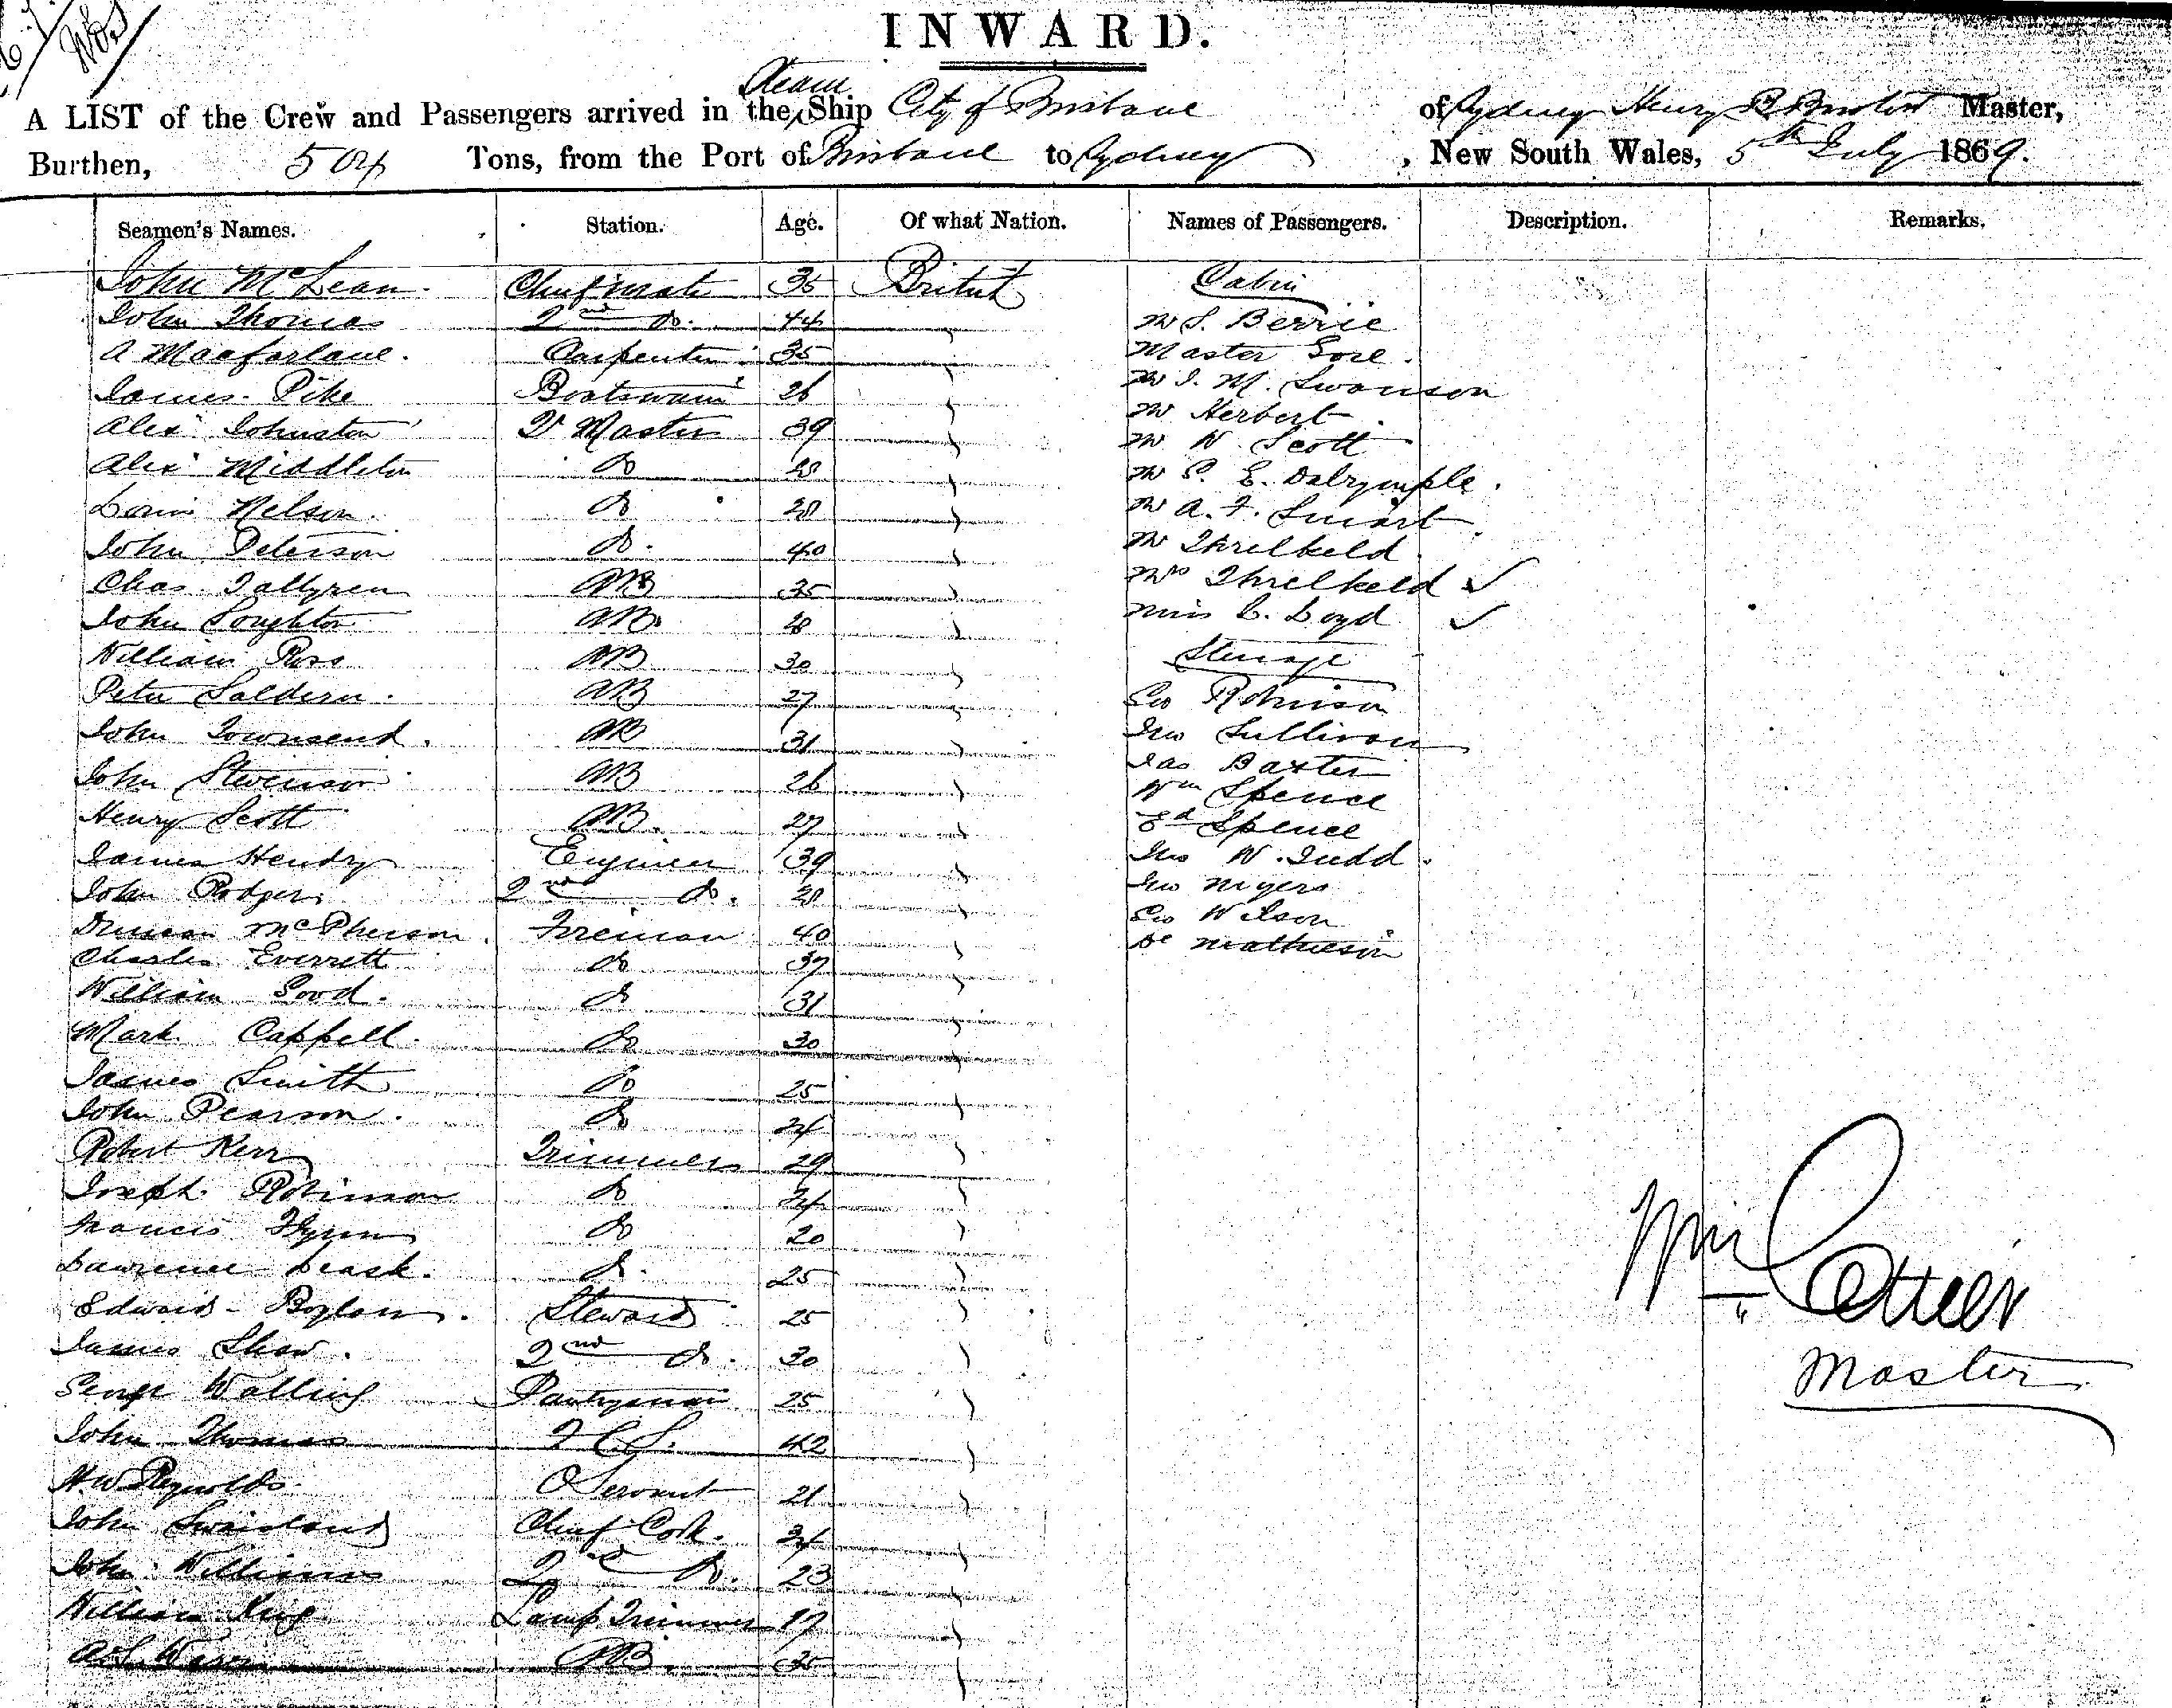 INWARD.
A LIST of the Crew and Passengers arrived in the Steam Ship City of Brisbane of Sydney Henry Master,
Burthen, 504 Tons, from the Port of Brisbane to Sydney, New South Wales, 5th July 1869.
Seamen's Names. Station. Age. Of what Nation. Names of Passengers. Description. Remarks.
John McLean Chief mate 35 British Cabin
John Thomas 2nd Do. 44 Mr S. Berrie
A Macfarlane. Carpenter 35 Master Gore.
James Pike Boatswain 26 Mr J. M. Swanson
Alexr Johnston Q Master 39 Mr Herbert
Mr W. Scott
Alexr Middleton Do 28 Mr G. E. Dalrymple.
Nelson. Do 28 Mr A. F. Smart
John Peterson Do. 40 Mr Threlkeld
Chas. AB 35 Mrs Threlkeld ✓
John AB. Miss C. Boyd ✓
William Ross AB 30 Steerage
Peter Saldern. AB 27 Geo Robinson
John Townsend. AB 31 Jno Sullivan
Jas Baxter
John Stevenson AB 26 Wm Spence
Henry Scott AB. 27 Ed Spence
James Hendry Engineer 39 Jno W. Judd.
John Rodger 2nd Do. 28 Jno Myers
Geo Wilson
Duncan McPherson. Fireman 40 Mathieson
Charles Everrett Do 37
William Good. Do 31
Mark Cappell. Do 30
James Smith Do 25
John Pearson. Do 24
Robert Kerr Trimmers 29
Joseph Robinson Do 24
Francis Flynn Do 20
Lawrence Leask. Do. 25
Edward Boylan. Steward 25
James Shaw. 2nd Do. 30
George Walling Pantryman 25
John Thomas 42
H W Reynolds Servant 21
John Swainland Chief Cook. 24
John Williams 2nd Do. 23
William King Lamp Trimmer 17
AB. 35
Master